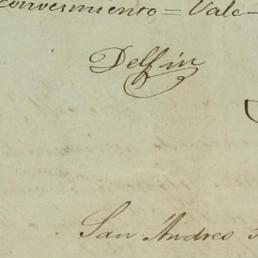 convenimiento = Vale
Delfin
San Andres